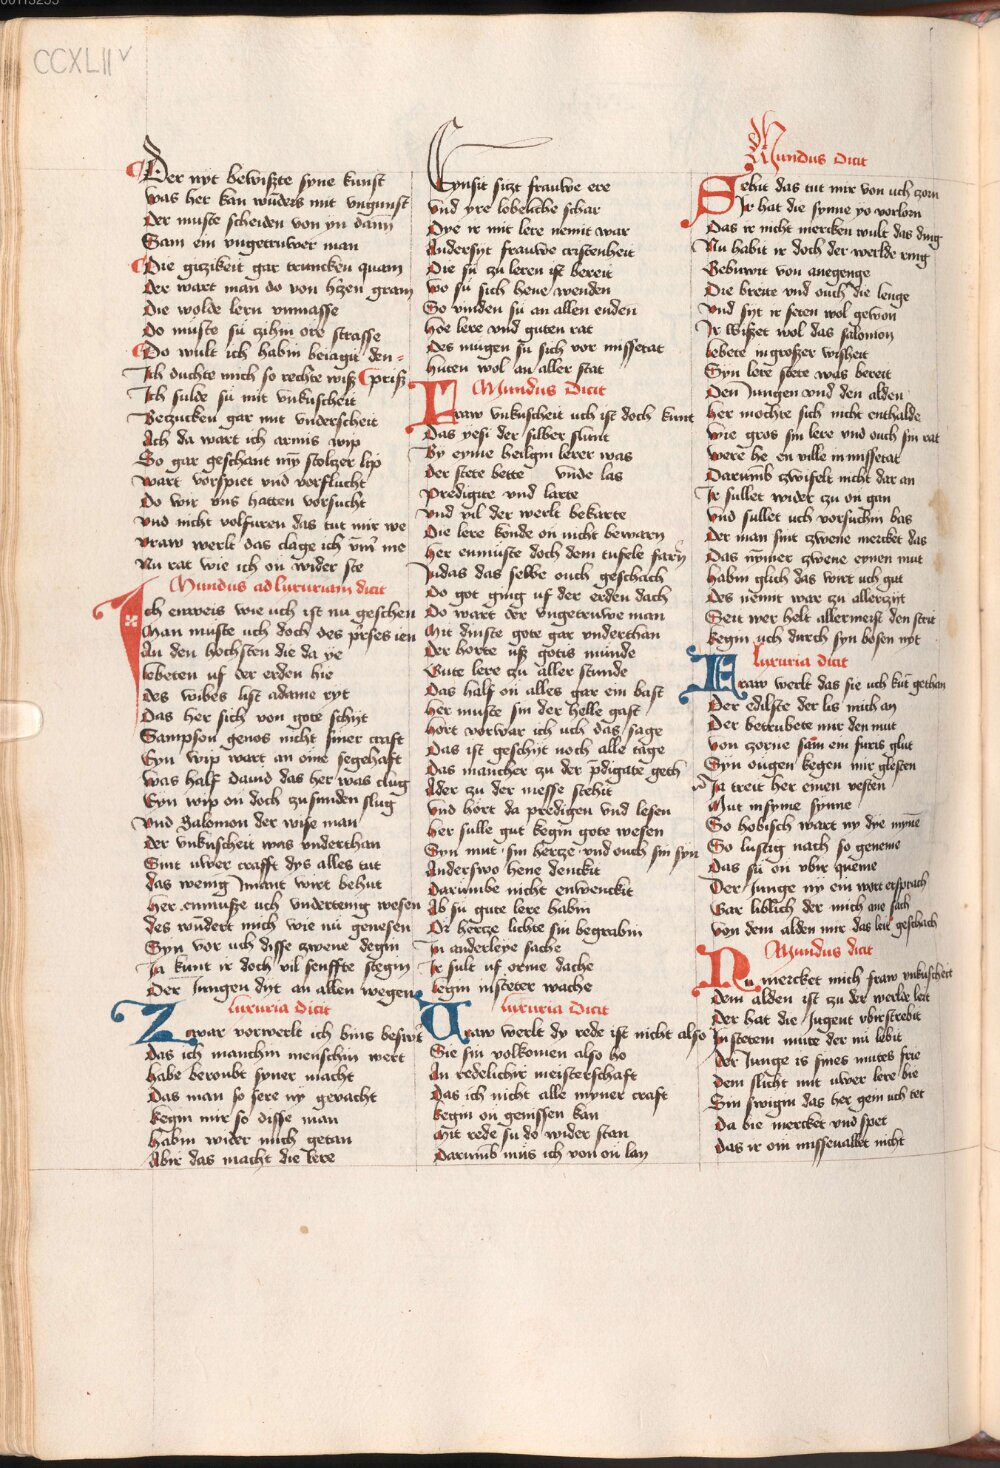 CCXLII v
Der nyt bewißte syne kunst
Was her kan wuders mit vngunst
Der muste scheiden von yn dann
Sam ein vngetruwer man
Die gizikeit gar truncken quam
Der wart man do von hzen gram
Die wolde lern vnmasse
Do muste su zihin ore strasse
Do wult ich habin beiagit den
Ich duchte mich so rechte wiß priß
Ich sulde su mit vnkuscheit
Bezucken gar mit vnderscheit
Ach da wart ich armis wip
So gar geschant myn stolzer lip
Wart vorspiet und vorflucht
Do wir vns hatten vorsucht
Vnd nicht volfuren das tut mir we
Vraw werlt das clage ich vm me
Nu rat wie ich on wider ste
Mundus ad luxuriam dicit
Ich enweis wie uch ist nu geschen
Man muste uch doch des prises ien
An den hochsten die da ye
lebeten uf der erden hie
Des wibes list adame ryt
Das her sich von gote schiet
Sampson genos nicht siner craft
Syn wip wart an ome segehaft
Was half dauid das her was clug
Eyn wip on doch zu sunden slug
Vnd Salomon der wise man
Der vnkuscheit was vnderthan
Sint uwer crafft dys alles tut
das wenig ymant wirt behut
Her enmusße uch vndertenig wesen
des wudert mich wie nu genesen
Syn vor uch disse zwene degin
Ja kunt ir doch vil senffte stegin
Der Jungen dyt an allen wegen
luxuria Dicit
Zwar vorwerlt ich bins beswt
Das ich manchin menschin wert
Habe beroubt syner macht
Das man so sere ny gevacht
Kegin mir so disse man
Habin wider mich getan
Abir das macht die lere
Cynsit sizt frauwe ere
Vnd yre lobeliche schar
Dye ir mit lere nemit war
Andersyt frauwe cristenheit
Die su zu leren ist bereit
Wo su sich hene wenden
So vinden su an allen enden
Hoe lere vnd guten rat
Des mugen su sich vor missetat
Huten wol an aller stat
Mundus Dicit
Fraw vnkuscheit uch ist doch kunt
Das yesi der silber slunt
By eyme heilgin lerer was
Der stete bette vnde las
Predigite vnd larte
Vnd vil der werlt bekarte
Die lere konde on nicht bewarn
Her enmuste doch dem tufele farn
Judas das selbe ouch geschach
Do got ging uf der erden dach
Do wart der vngetruwe man
Mit dinste gote gar vnderthan
Der horte uß gotis munde
Gute lere zu aller stunde
Das half on alles gar ein bast
Her muste sin der helle gast
Hort vorwar ich uch das sage
Das ist geschyt noch alle tage
Das mancher zu der pdigate geth
Ader zu der messe stehit
Vnd hort da predigen vnd lesen
Her sulle gut kegin gote wesen
Syn mut sin hertze vnd ouch sin syn
Anderswo hene denckit
Darumbe nicht enwenckit
Ab su gute lere habin
Or hertze lichte sin begrabin
In anderleye sache
Ir sult uf orme dache
Legin nisteter wache
luxuria Dicit
Uraw werlt dy rede ist nicht also
Sie sin volkomen also ho
An redelichir meisterschaft
Das ich nicht alle myner craft
Kegin on genissen kan
Mit rede su do wider stan
Darumb mus ich von on lan
Mundus Dicit
Sehit das tut mir von uch zorn
Ir hat die synne yo vorlorn
Das ir nicht mercken wult das ding
Nu habit ir doch der werlde ring
Gebuwit von anegenge
Die breite vnd ouch die lenge
Vnd syt ir seren wol gewon
Ir wißet wol das salomon
lebete in großer wisheit
Syn lere stete was bereit
Den Jungen vnd den alden
Her mochte sich nicht enthalde
Wie gros sin lere vnd ouch sin rat
Were he en ville in missetat
Darumb zwifelt nicht dar an
Ir sullet wider zu on gan
Vnd sullet uch vorsuchin bas
Der man sint zwene mercket das
Das nymer zwene eynen mut
Habin glich das wirt uch gut
Des nemt war zu allerzyt
Seit wer helt allermeist den strit
Kegin uch durch syn bosen nyt
luxuria dicit
Fraw werlt das sie uch kut gethan
Der edilste der lis mich an
Der betrubete mir den mut
Von zorne sam ein furis glut
Syn ougen kegen mir glesten
Ja treit her einen vesten
Mut in syme synne
So hobisch wart ny dye mynne
So lustig nach so geneme
Das su on vbir queme
Der Junge ny ein wort ersprach
Gar liblich der mich ane sach
Von dem alden mir das leit geschach
Mundus dicit
Nu mercket mich fraw vnkuscheit
Dem alden ist zu der werlde leit
Der hat die Jugent vbirstrebit
In stetem mute der nu lebit
Der Junge is sines mutes frie
Dem slicht mit uwer lere bie
Sin swigin das her gein uch tet
Da bie mercket vnd spet
Das ir om missevallet nicht